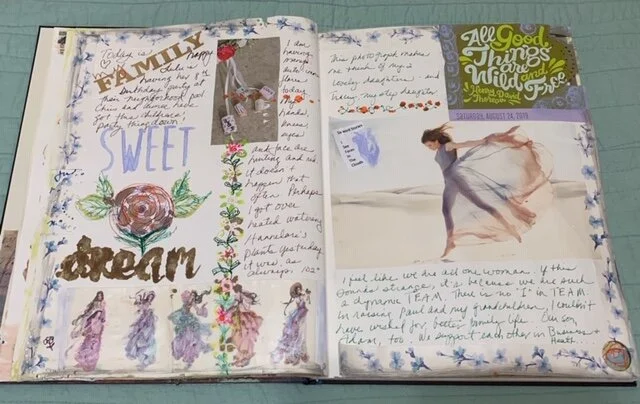 Today is happy
FAMILY
Lula is
having her 8th
Birthday party at
their neighborhood pool
Chris and
got this
party
SWEET
dream
I am
having
auto
today
hands
knees
eyes
and face are
hurting and red
it doesn't
happen that
often Perhaps
I got over
heated watering
Hannelore's
plants yesterday
it was as
always 102°
This photograph makes
me think of my 2
lovely daughters and
my step daughter.
All Good
Things
are
Wild and
Free.
Henry David
Thoreau
SATURDAY, AUGUST 24, 2019
I feel like we are all one woman. If this
sounds strange, it's because we are such
a dynamic TEAM. There is no "I" in TEAM.
In raising Paul and my grandchildren I couldn't
have wished for better family life. Our son
Adam, too. We support each other in Business &
Heath...